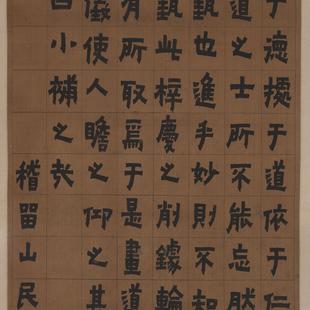 于德據于道依于仁
道之士所不能忘然
藝也進乎妙則不知
藝此梓慶之削鐻輪
有所取焉于是畫道
儀使人瞻之仰之其
曰小補之哉
稽留山民